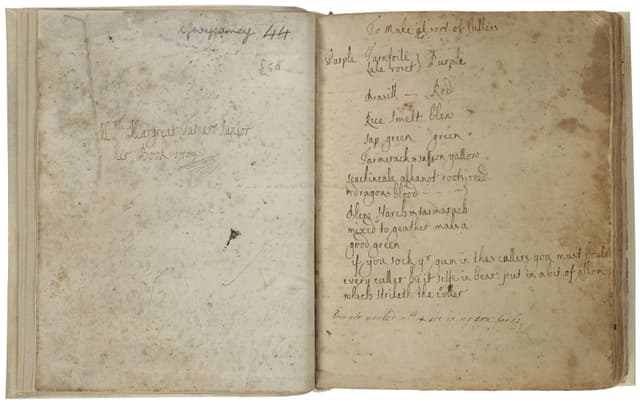 44
£50
Mrs Margreat
Junior
her Book 1709
To make all sort of Cullers
Purple Turnsoile } Purple
lake roset
Brasill — Red
Rice Smelt blew
sap green green
Turmerack or safron yallow
scachineale alkanot roots reed
or dragons blood — }
Blew Starch & tarmarack
mixed to geather maks a
good green
if you sock yr gum in thes cullers you must
every culler by it selfe in bear put in a bit of allom
which striketh the culler